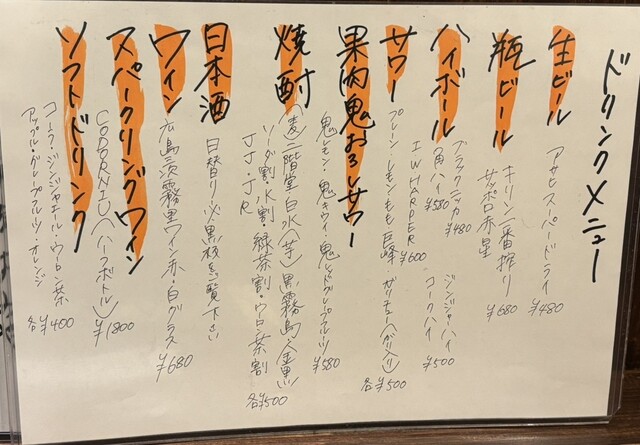 ドリンクメニュー
生ビール
アサヒスーパードライ ¥480
瓶ビール
キリン一番搾り
サッポロ赤星 ¥680
ハイボール
ブラックニッカ ¥480
角ハイ ¥580
I.W.HARPER ¥600
ジンジャーハイ
コークハイ ¥500
サワー
プレーン・レモン・もも・巨峰・ガリチュー(ガリ入り) 各¥500
果肉鬼おろしサワー
鬼レモン・鬼キウイ・鬼レッドグレープフルーツ ¥580
焼酎
(麦)二階堂 白水 (芋)黒霧島 (金黒)
ソーダ割・水割・緑茶割・ウーロン茶割
JJ・JR 各¥500
日本酒
日替り 黒板ご覧下さい
ワイン
広島三次霧里ワイン赤・白グラス ¥680
スパークリングワイン
CODORNIU(ハーフボトル) ¥1800
ソフトドリンク
コーク・ジンジャエール・ウーロン茶
アップル・グレープフルーツ・オレンジ 各¥400